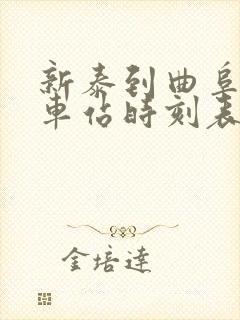 新泰到曲阜
車佔時刻表
金培達